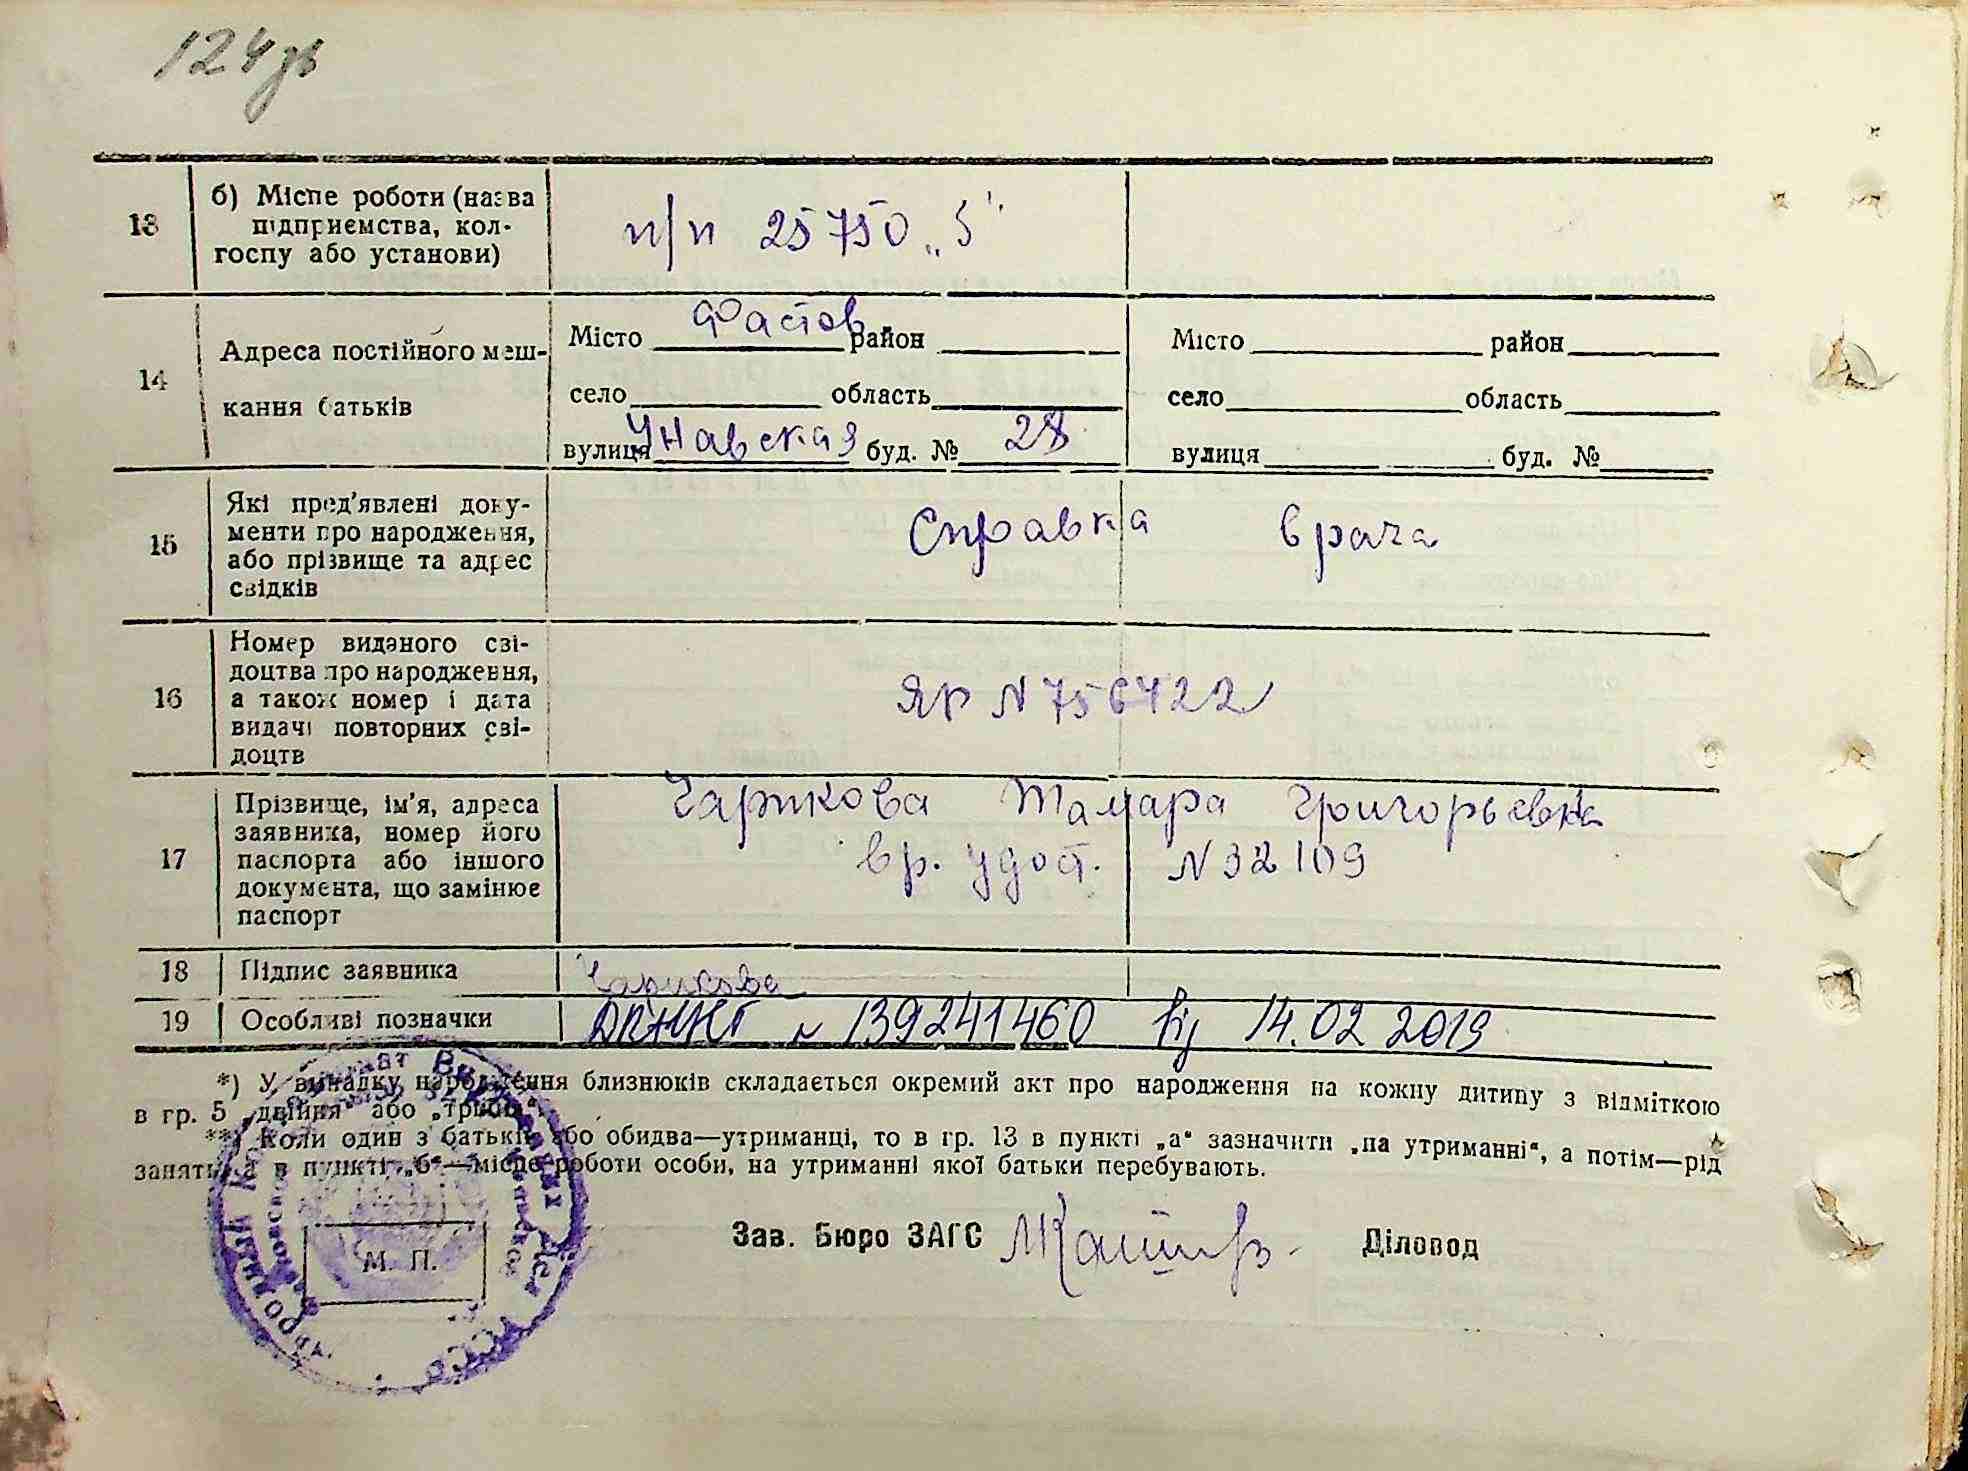 124зв
13
б) Місце роботи (назва
підприємства, кол-
госпу або установи)
п/п 25750 „З"
14
Адреса постійного меш-
кання батьків
Місто Фастов район
село область
вулиця Унавская буд. № 28
Місто район
село область
вулиця буд. №
15
Які пред'явлені доку-
менти про народження,
або прізвище та адрес
свідків
Справка врача
16
Номер виданого сві-
доцтва про народження,
а також номер і дата
видачі повторних сві-
доцтв
ЯР N 756422
17
Прізвище, ім'я, адреса
заявника, номер його
паспорта або іншого
документа, що замінює
паспорт
Чарикова Тамара Григорьевна
вр. удост. N 32109
18 Підпис заявника
Чарикова
19 Особливі позначки
N 139241460 від 14.02 2019
*) У випадку народження близнюків складається окремий акт про народження на кожну дитину з відміткою
в гр. 5 „двійня" або „трійня".
**) Коли один з батьків або обидва—утриманці, то в гр. 13 в пункті „а" зазначити „на утриманні", а потім—рід
заняття, а в пункті „б"—місце роботи особи, на утриманні якої батьки перебувають.
Зав. Бюро ЗАГС
Діловод
М. П.